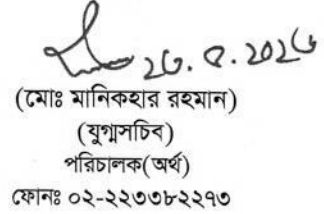 (মোঃ মানিকহার রহমান)
(যুগ্মসচিব)
পরিচালক(অর্থ)
ফোনঃ ০২-২২৩৩৮২২৭৩